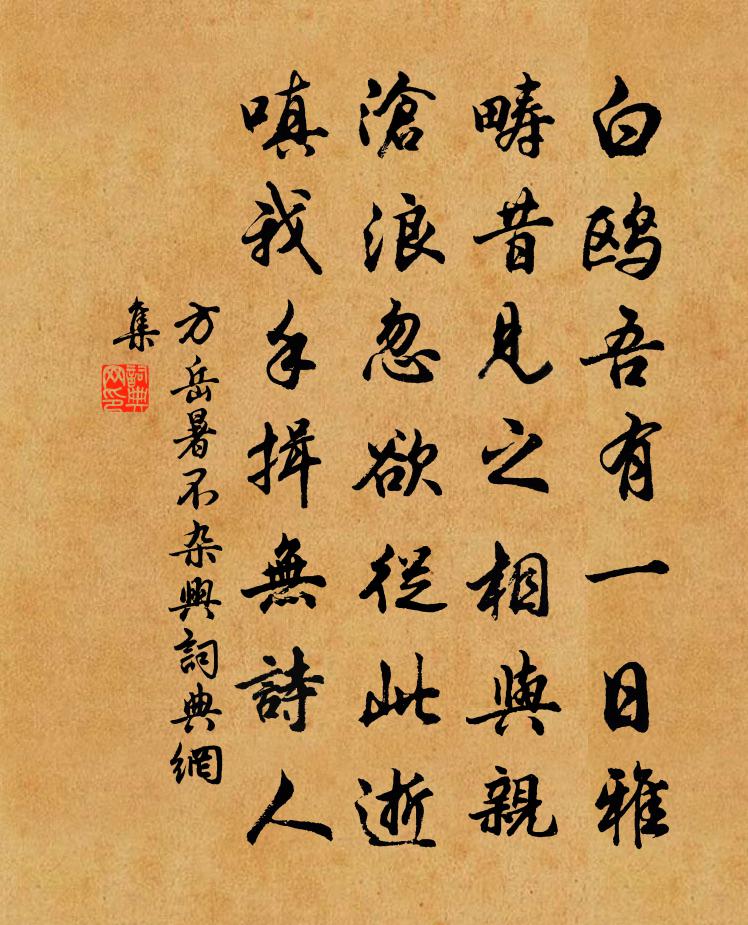 白鷗吾有一日雅
疇昔見之相與親
滄浪忽欲從此逝
嗔我手揖無詩人
方岳暑不杂興詞典網
集
詞典
网印